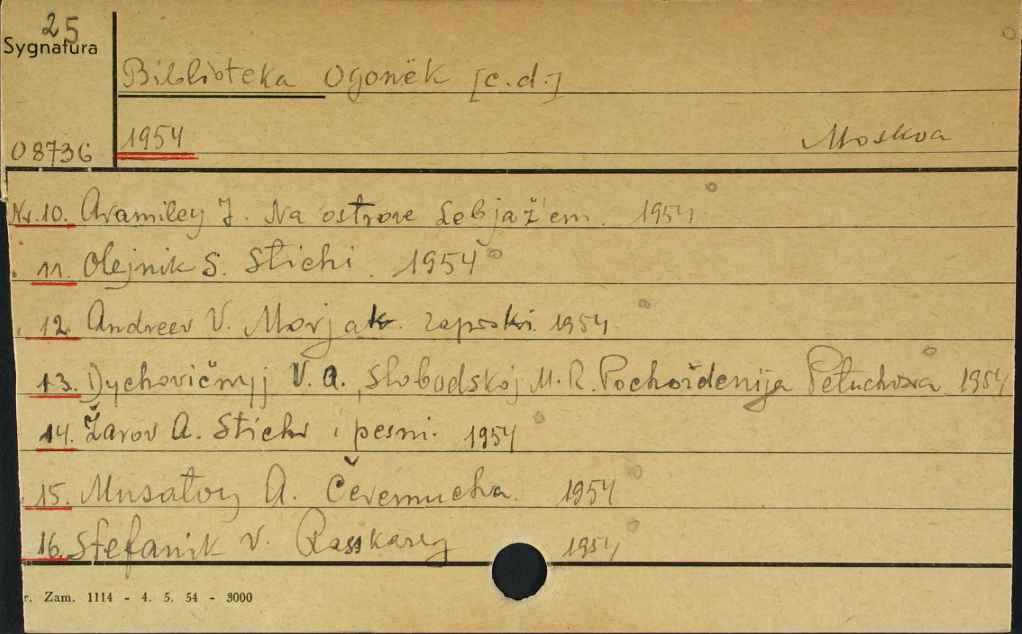 25
Sygnatura
Biblioteka Ogonëk [c.d.]
1954 Moskva
08736
Nr. 10. Aramilev J. Na ostrove Lebjaž'em. 1954
11. Olejnik S. Stichi. 1954
12. Andreev V. Morjak. zapiski. 1954.
13. Dychovičnyj V. A., Slobodskoj M. R. Pochoždenija Petuchova 1954
14. Žarov A. Stichi i pesni. 1954
15. Musatov A. Čeremucha. 1954
16. Stefanik V. Rasskazy 1954
r. Zam. 1114 - 4. 5. 54 - 3000